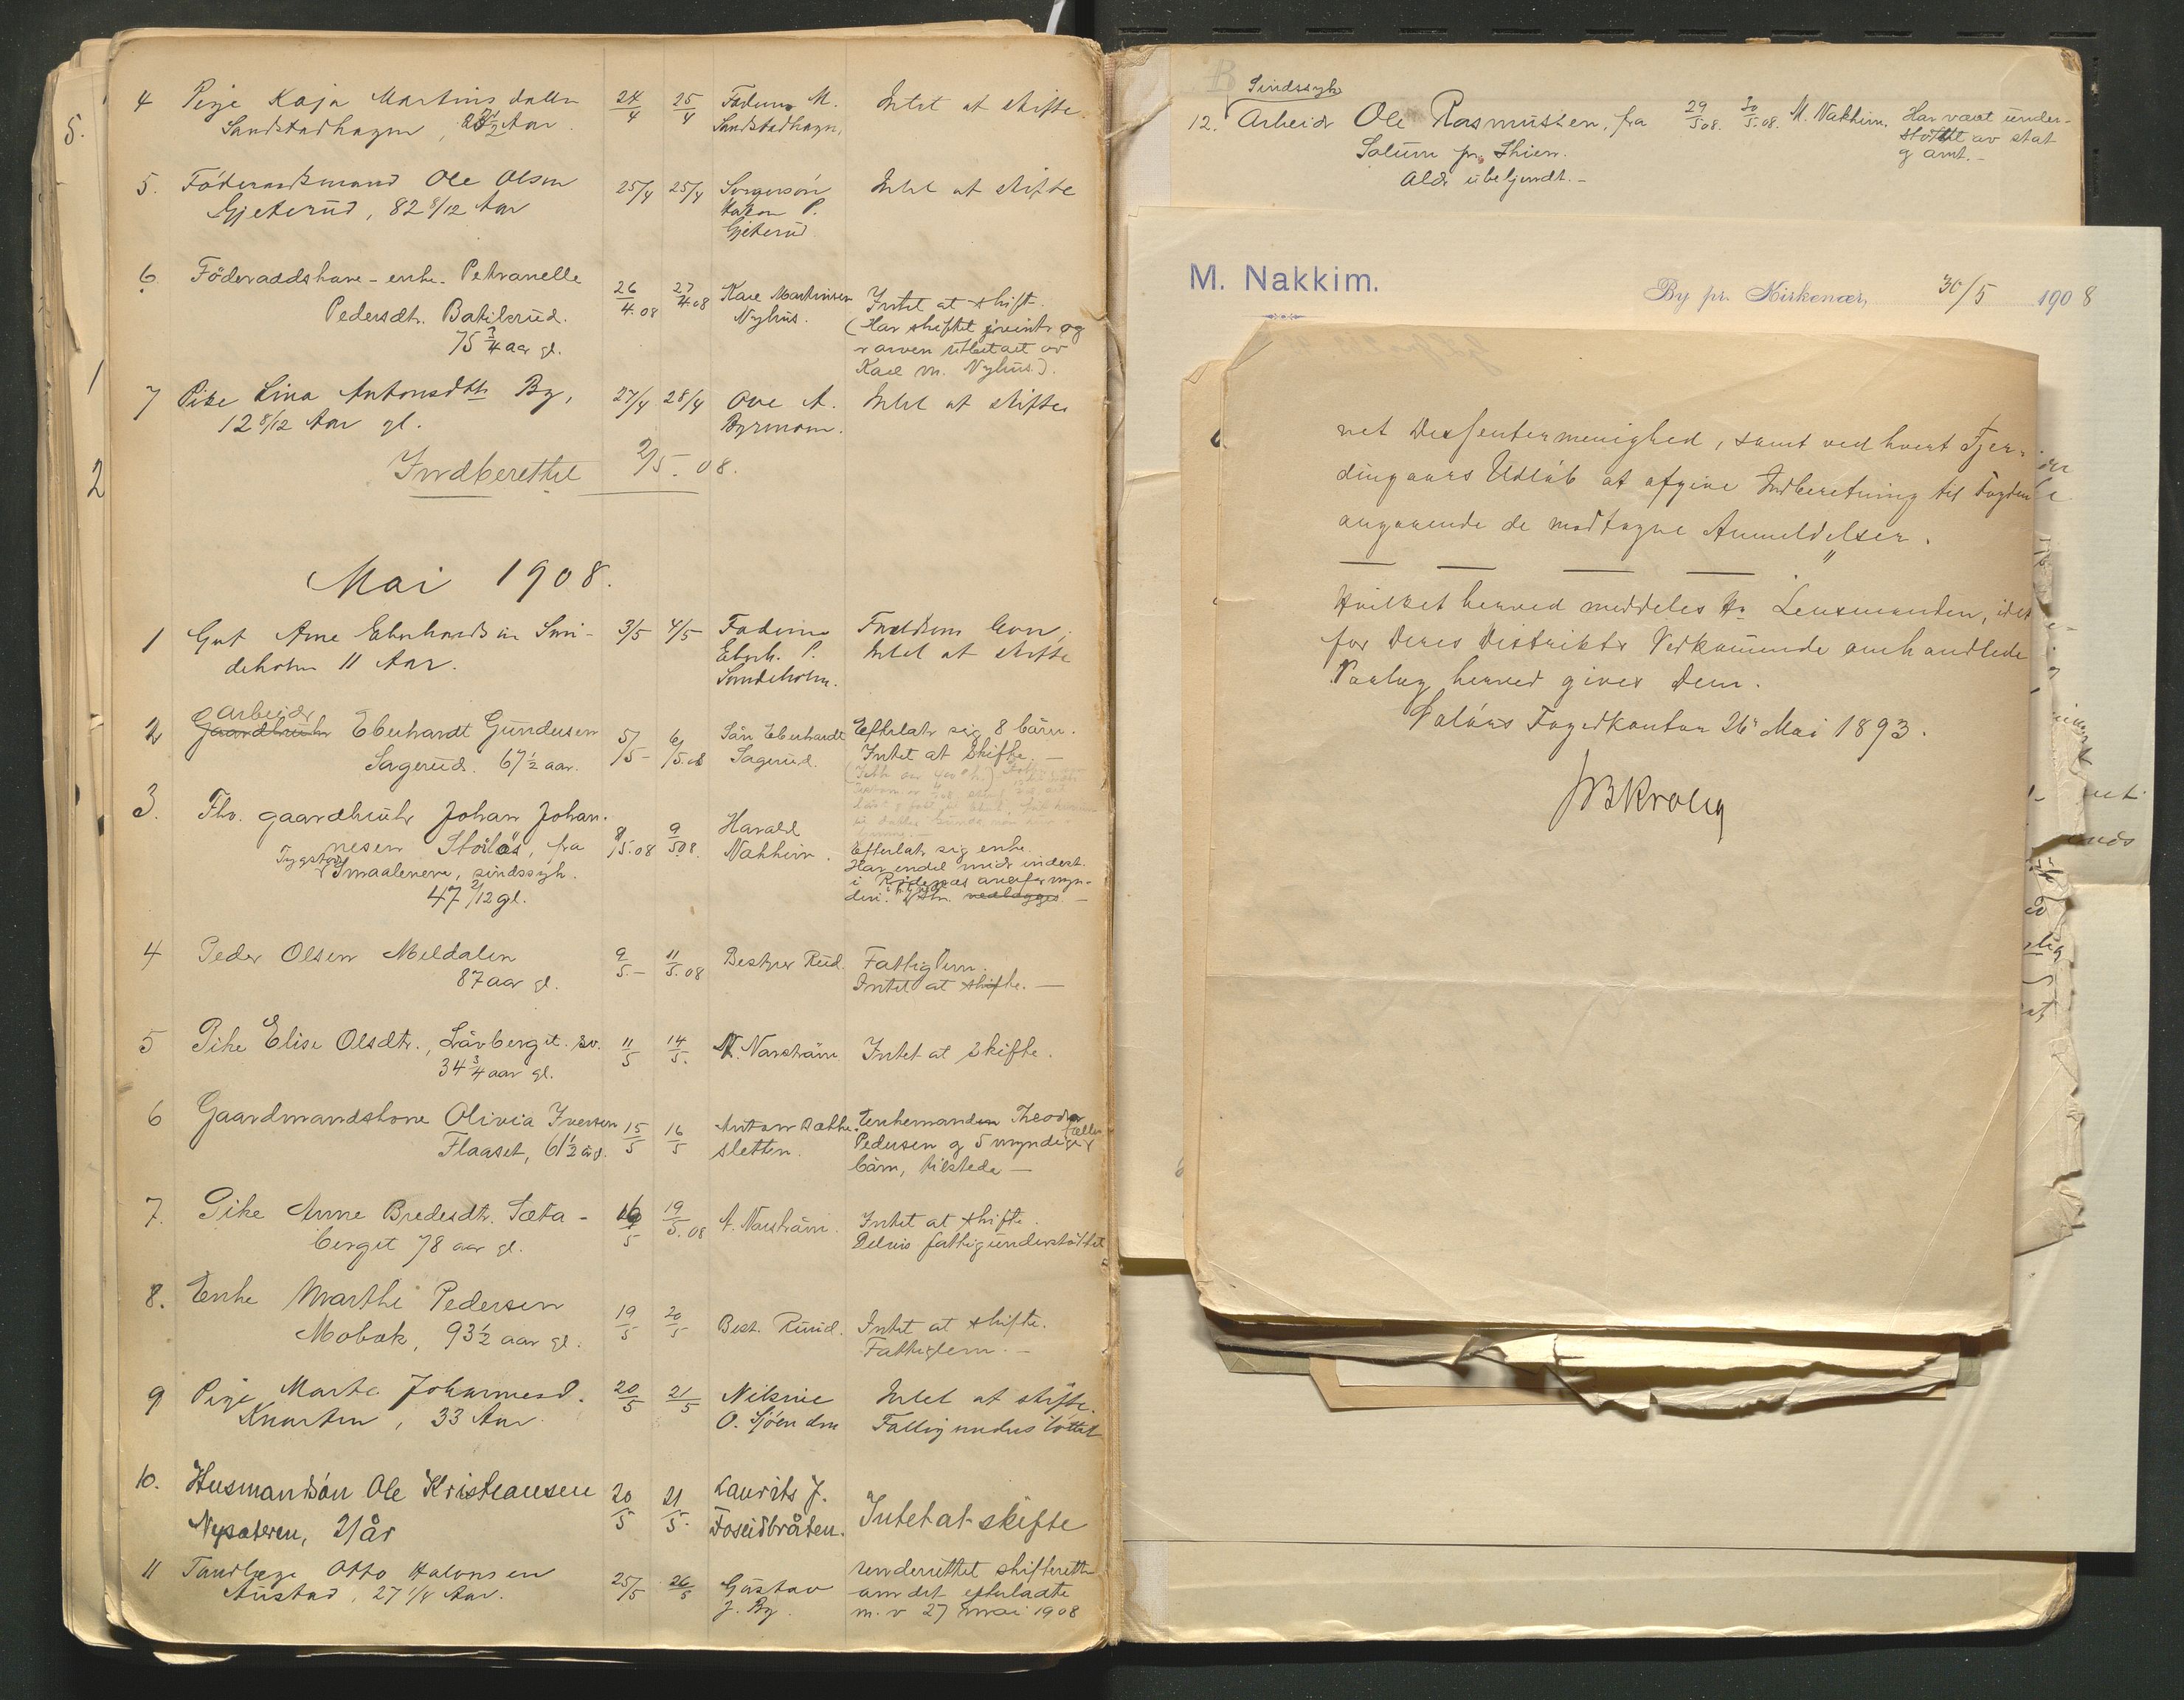 4 Pige Kaja Martinsdatter 24/4 25/4 Faderen M. Intet at skifte.
Sandstadhagen, Aar. Sandstadhagen,
5. Föderaadsmand Ole Olsen 25/4 25/4 Svigersön Intet at skifte
Gjeterud, 82 8/12 Aar Hakon P.
Gjeterud
6. Föderaadskone - enke. Petranelle
Pedersdt. Batilsrud. 26/4.08 27/4.08 Kare Martinsen Intet at skift.
75 3/4 aar gl. Nyhus. (Har skiftet og
arven utbetalt av
Kare M. Nyhus).
7 Pike Lina Antonsdtr By, 27/4 28/4 Ove A. Intet at skifte
12 8/12 Aar gl. Byrmoen.
Indberettet 2/5.08.
Mai 1908.
1 Gut Arne Eberhardsen Smi- 3/5 4/5 Faderen Forældrene lever,
deholm 11 Aar. Eberh. P. Intet at skifte
Smideholm.
arbeidr
2 Gaardbruker Eberhardt Gundersen 5/5 - 6/5.08 Sön Eberhardt Efterlatr sig 8 börn.
Sagerud. 67 1/2 aar. Sagerud. Intet at skifte. -
3. Fhv. gaardbrukr Johan Johan-
nesen Stöilös, fra 8/5.08 9/5.08 Harald Efterlatr sig enke.
Trygstad, Smaalenene, sindssyk. Nakkim. Har endel midr indest.
47 2/12 gl. i Rödenæs overformyn-
deri. vedlægges. -
4 Peder Olsen Meldalen 9/5. - 11/5.08 Bestyrer Rud. Fattiglem.
87 aar gl. Intet at skifte. -
5 Pike Elise Olsdtr., Lövberget. sv. 11/5 14/5. N. Narström Intet at skifte.
34 3/4 aar gl.
6 Gaardmandskone Olivia Iversen 15/5 16/5 Anton Sæthe- Enkemanden Theodor
Flaaset, 61 1/2 år. sletten. Pedersen g 5 myndige fælles
börn, tilstede -
7. Pike Anne Bredesdtr. Sæta- 16/5 19/5.08 N. Narström. Intet at skifte.
berget 78 aar gl. Delvis fattigunderstöttet
8. Enke Marthe Pedersen
Mobæk, 93 1/2 aar gl. 19/5 20/5 Best. Ruud. Intet at skifte.
Fattiglem. -
9 Pige Marte Johannesd. 20/5 21/5 Nikoline Intet at skifte.
Knarten, 33 Aar. O. Sjöenden Fattigunderstöttet
10. Husmandsön Ole Kristiansen 20/5 21/5. Laurits J. Intet at skifte
Nysæteren, 21 år Foseidbråten.
11 Tandlæge Otto Halvorsen 25/5 26/5 Gustav underrettet skifteretten
Austad, 27 1/4 Aar. J. By. om det efterladte
m. v 27 mai 1908
5.
1
2
Sindssyk
12. Arbeidr Ole Rasmussen, fra 29/5 08. 30/5.08. M. Nakkim. Har vært under-
Solum pr. Skien. støttet av stat
Aldr ubekjendt. - g amt. -
M. Nakkim. By pr. Kirkenær, 30/5 1908
net Dissentermenighed, samt ved hvert Fjer-
dingaars Udlöb at afgive Indberetning til Fogden
angaaende de modtagne Anmeldelser."
Hvilket herved meddeles Hr. Lensmanden, idet
for Deres Distrikts Vedkommende omhandlede
Paalæg herved gives Dem.
Solörs Fogedkontor 26 Mai 1893.